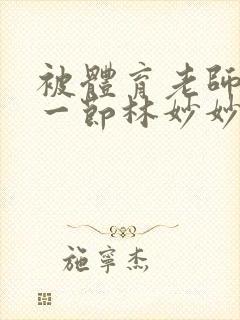 被體育老師
一節林妙妙
施寧杰